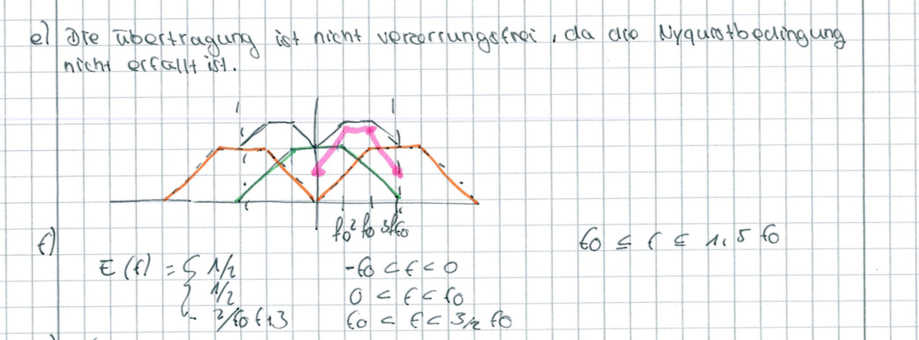 e) Die Übertragung ist nicht verzerrungsfrei, da die Nyquistbedingung
nicht erfüllt ist.
f0 2f0 3f0
f)
f0 ≤ f ≤ 1,5 f0
E(f) = { 1/2 -f0 < f < 0
1/2 0 < f < f0
f0 < f < 3/2 f0